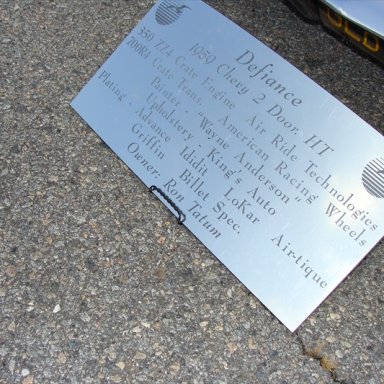 Defiance
1959 Chevy 2 Door HT
350 ZZ4 Crate Engine Air Ride Technologies
700R4 Crate Trans. American Racing Wheels
Painter - "Wayne Anderson"
Upholstery - King's Auto
Plating - Advance Ididit LoKar Air-tique
Griffin Billet Spec.
Owner: Ron Tatum
OLD